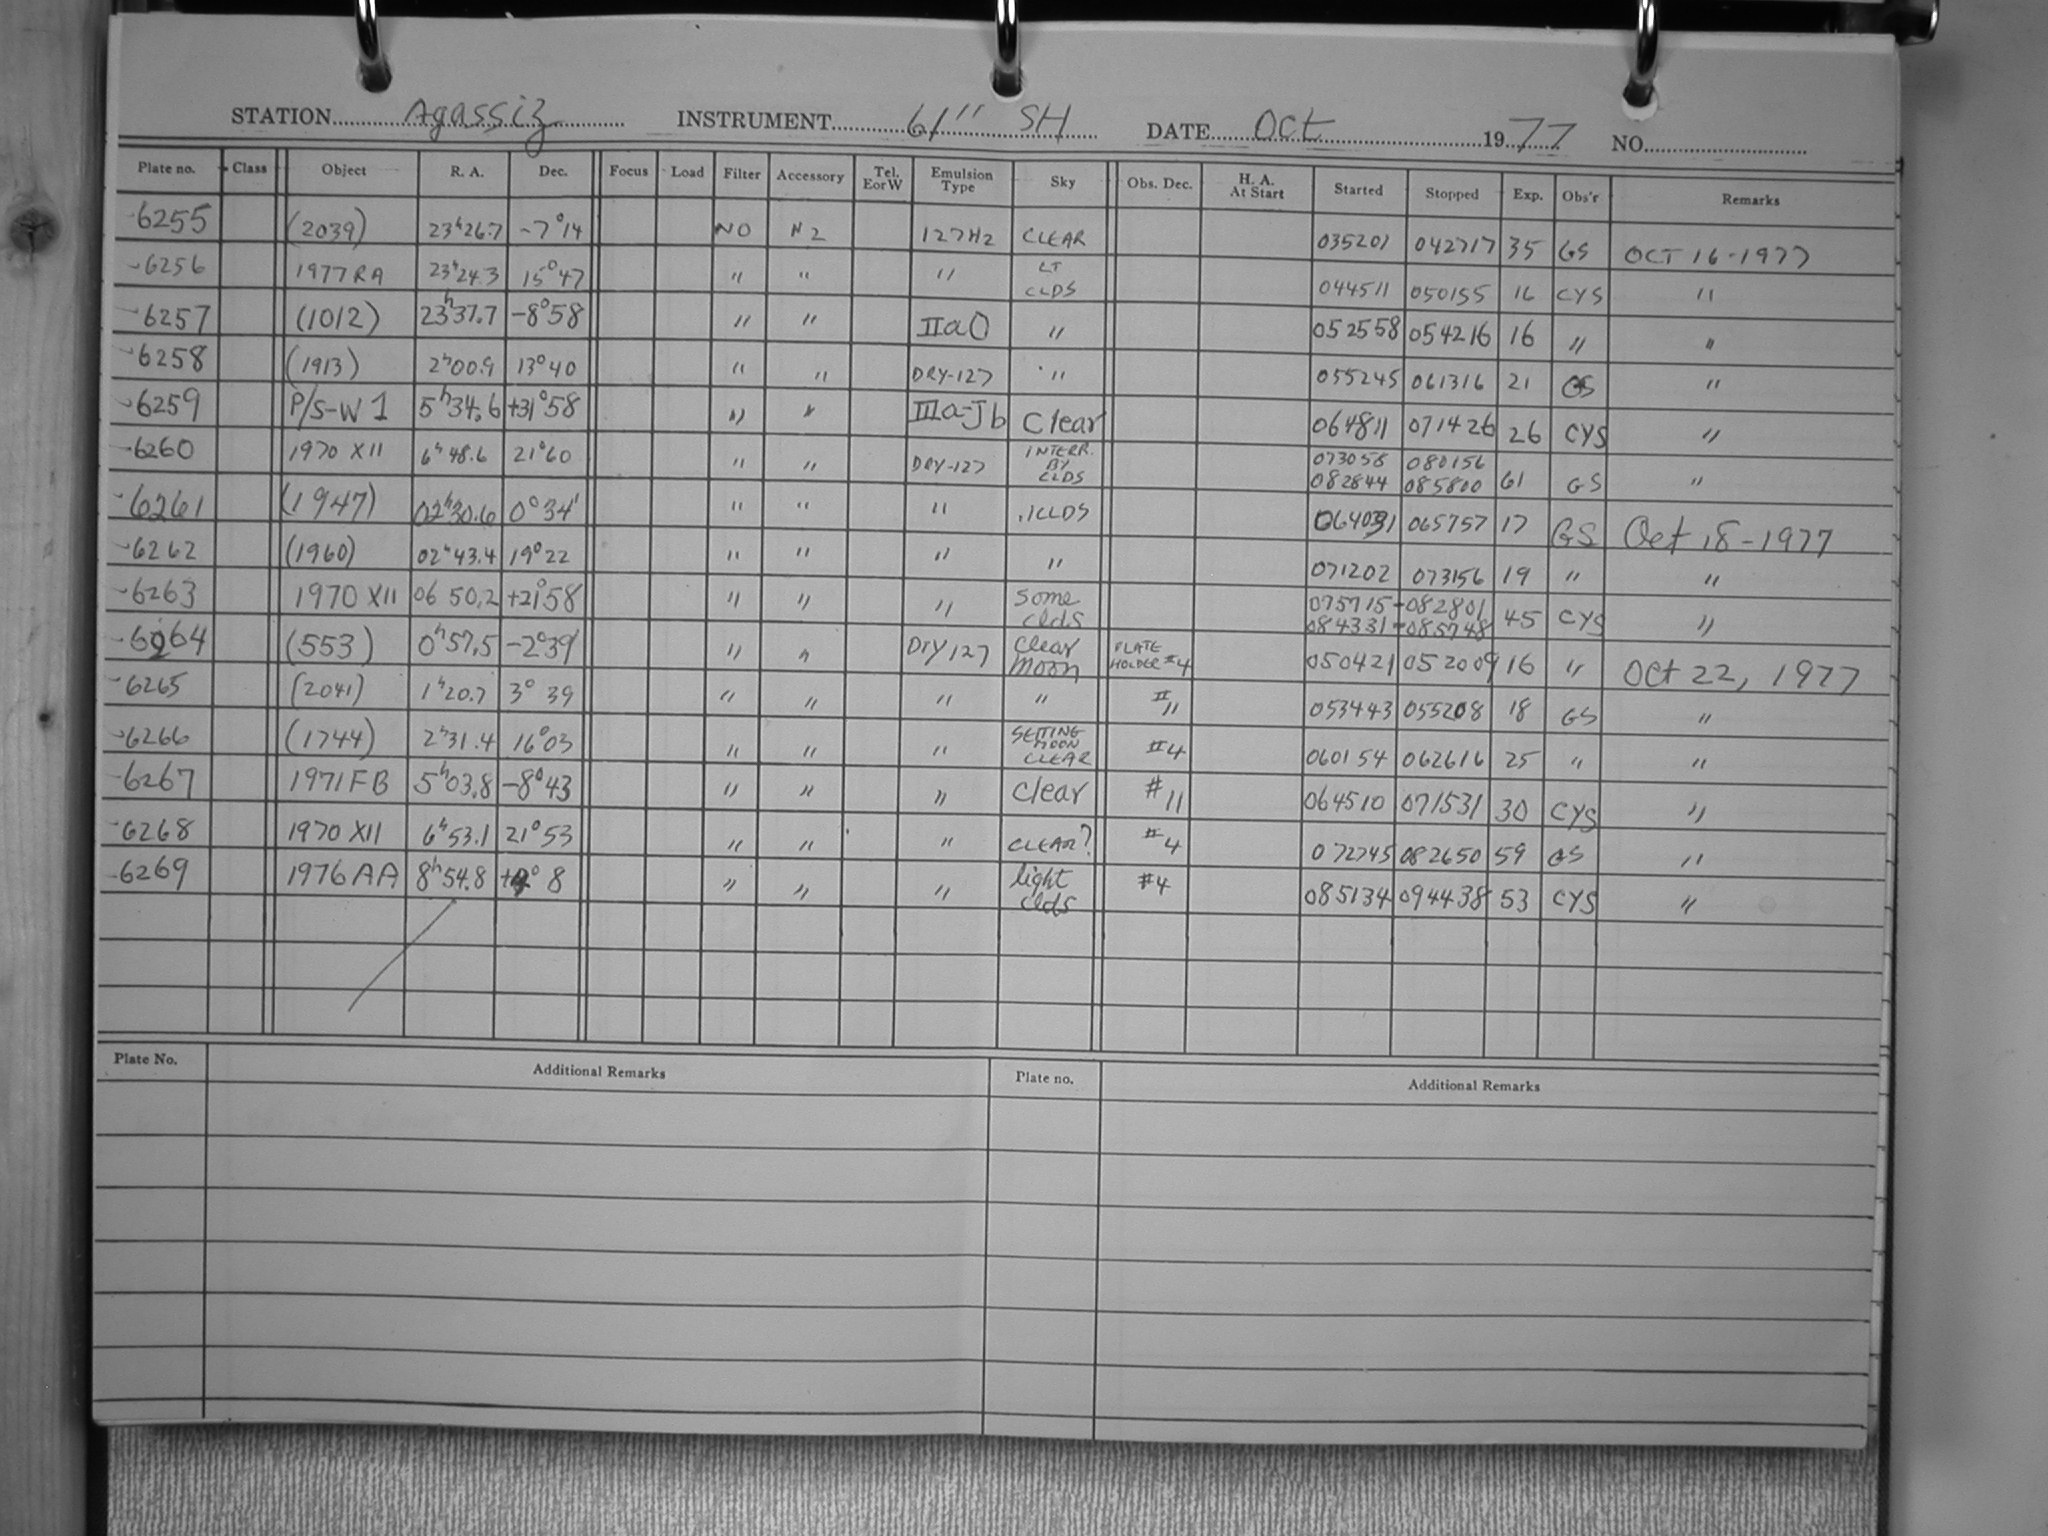 STATION Agassiz INSTRUMENT 61" SH DATE Oct 1977 NO.
Plate no. Class Object R. A. Dec. Focus Load Filter Accessory Tel. E or W Emulsion Type Sky Obs. Dec. H. A. At Start Started Stopped Exp. Obs'r Remarks
-6255 (2039) 23h26.7 -7°14 NO N2 127H2 CLEAR 035201 042717 35 GS OCT 16-1977
-6256 1977 RA 23h24.3 15°47 " " " LT CLDS 044511 050155 16 CYS "
-6257 (1012) 23h37.7 -8°58 " " IIaO " 052558 054216 16 " "
-6258 (1913) 2h00.9 13°40 " " DRY-127 " 055245 061316 21 GS "
-6259 P/S-W 1 5h34.6 +31°58 " " IIIa-Jb Clear 064811 071426 26 CYS "
-6260 1970 XII 6h48.6 21°60 " " DRY-127 INTERR. BY CLDS 073056 080156 61 GS "
082844 085800
-6261 (1947) 02h30.6 0°34' " " " .1CLDS 064031 065757 17 GS Oct 18-1977
-6262 (1960) 02h43.4 19°22 " " " " 071202 073156 19 " "
-6263 1970 XII 06 50.2 +21°58 " " " Some clds 075715-082801 45 CYS "
084331-085748
-6264 (553) 0h57.5 -2°39 " " Dry 127 Clear moon PLATE HOLDER #4 050421 052009 16 " Oct 22, 1977
-6265 (2041) 1h20.7 3° 39 " " " " #11 053443 055208 18 GS "
-6266 (1744) 2h31.4 16°03 " " " SETTING MOON CLEAR #4 060154 062616 25 " "
-6267 1971FB 5h03.8 -8°43 " " " Clear #11 064510 071531 30 CYS "
-6268 1970 XII 6h53.1 21°53 " " " CLEAR? #4 072745 082650 59 GS "
-6269 1976 AA 8h54.8 " " " light clds #4 085134 094438 53 CYS "
Plate No. Additional Remarks Plate no. Additional Remarks